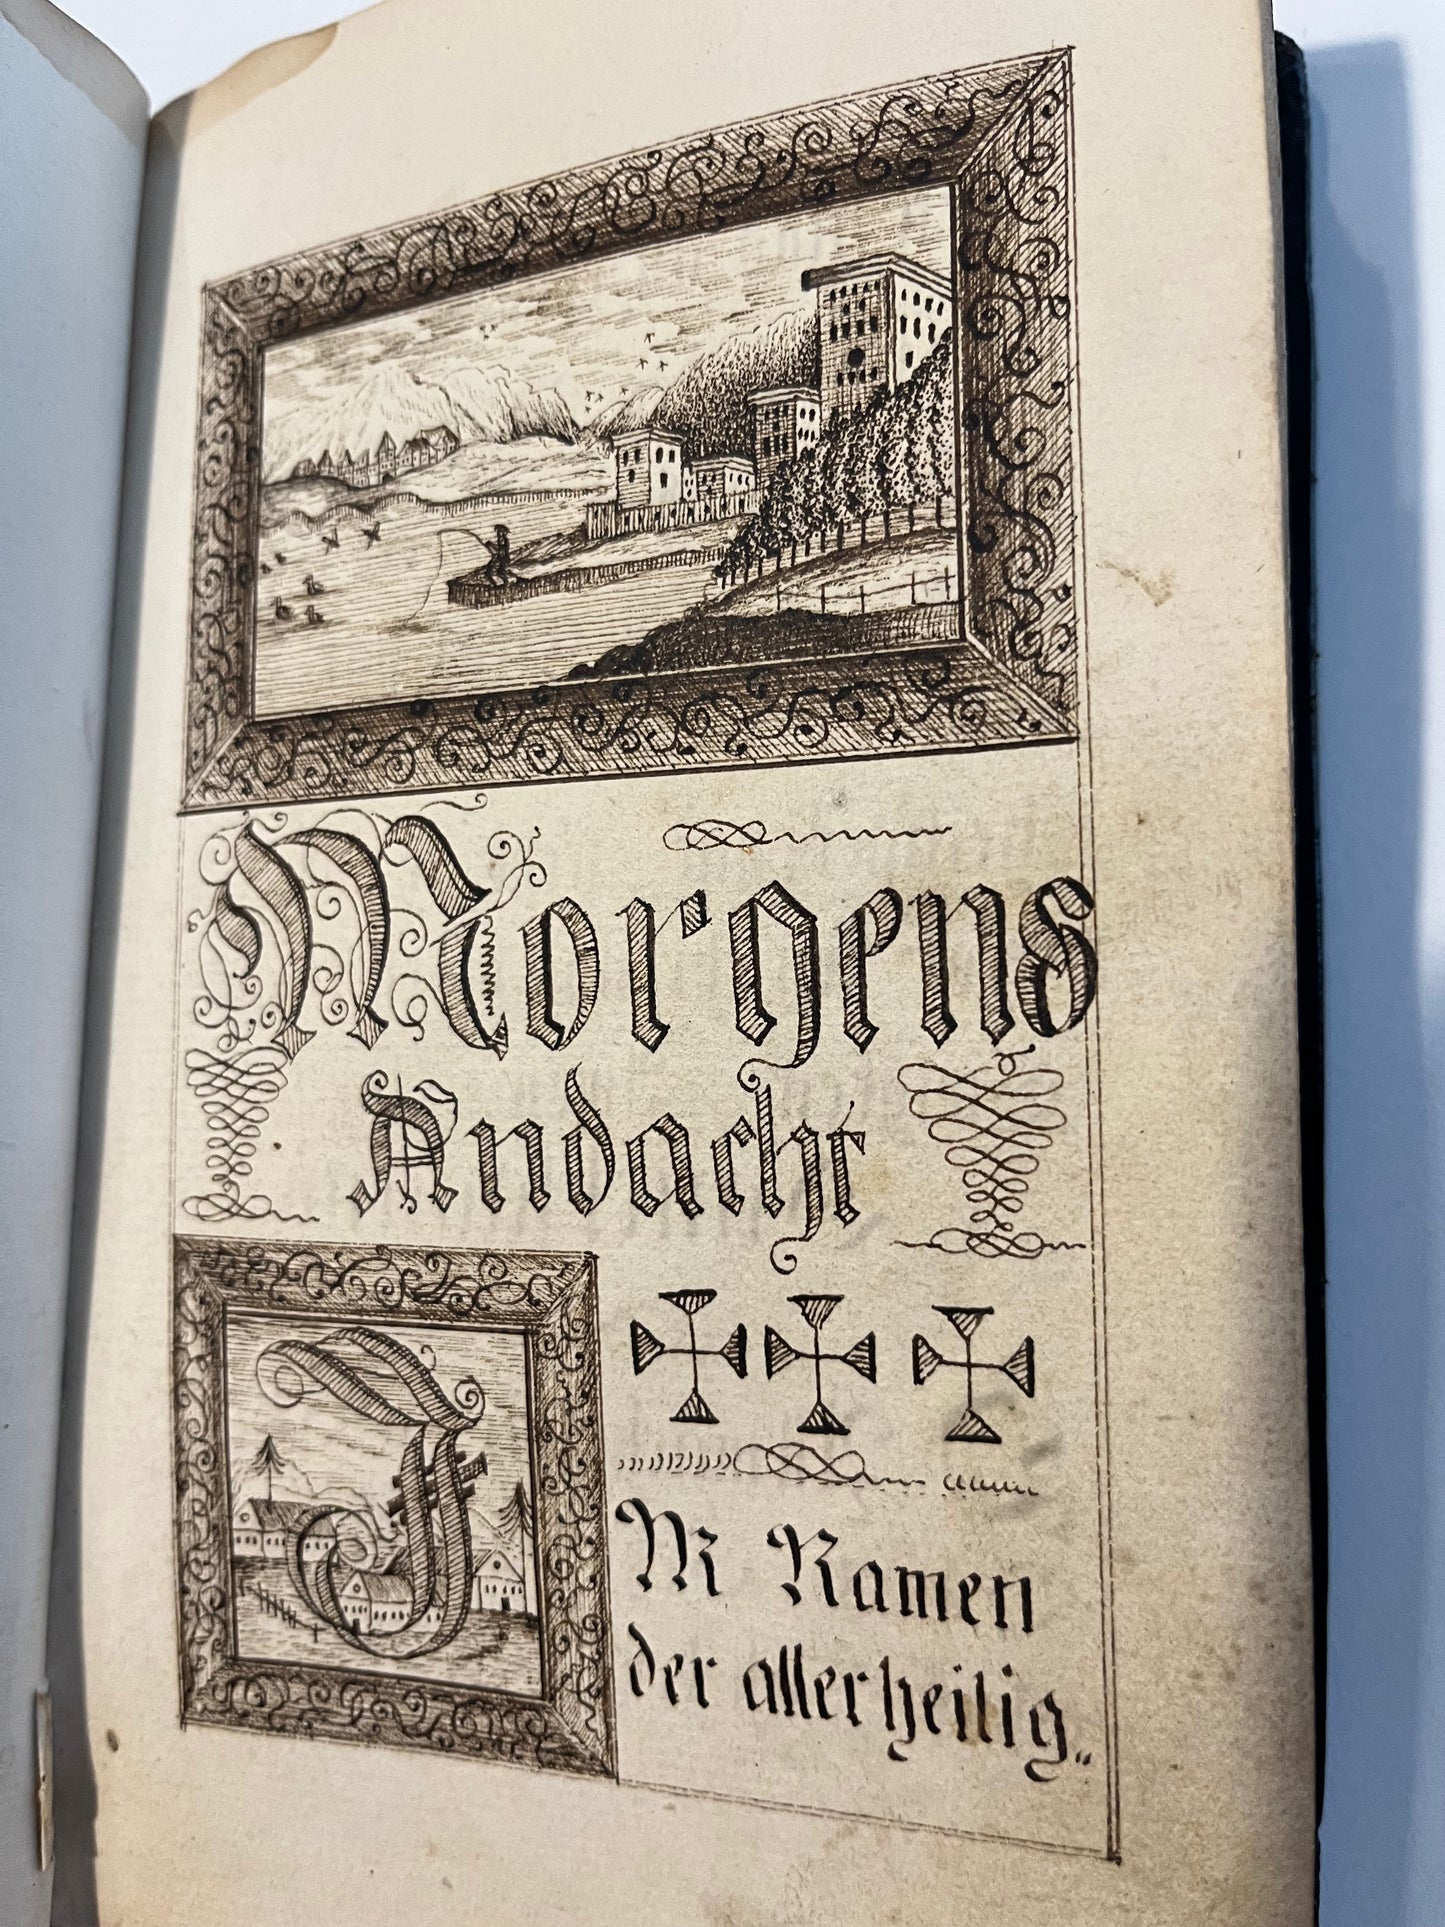 Morgens
Andacht
IM Namen
der allerheilig„